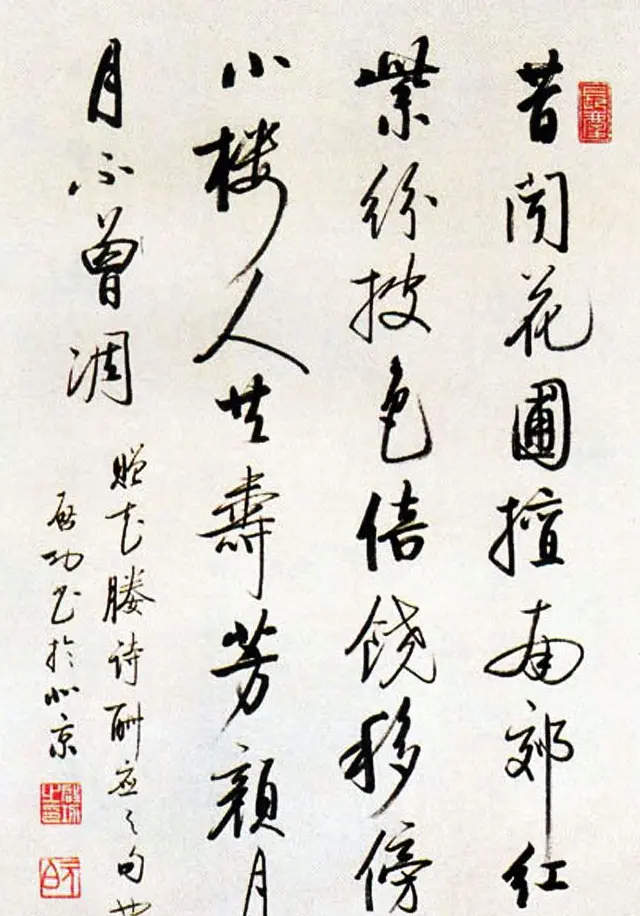 昔闻花圃擅南郊红
紫纷披色倍饶移傍
小楼人共寿芳颜月
月不曾凋
赠花媵诗酬应之句也
启功书于北京